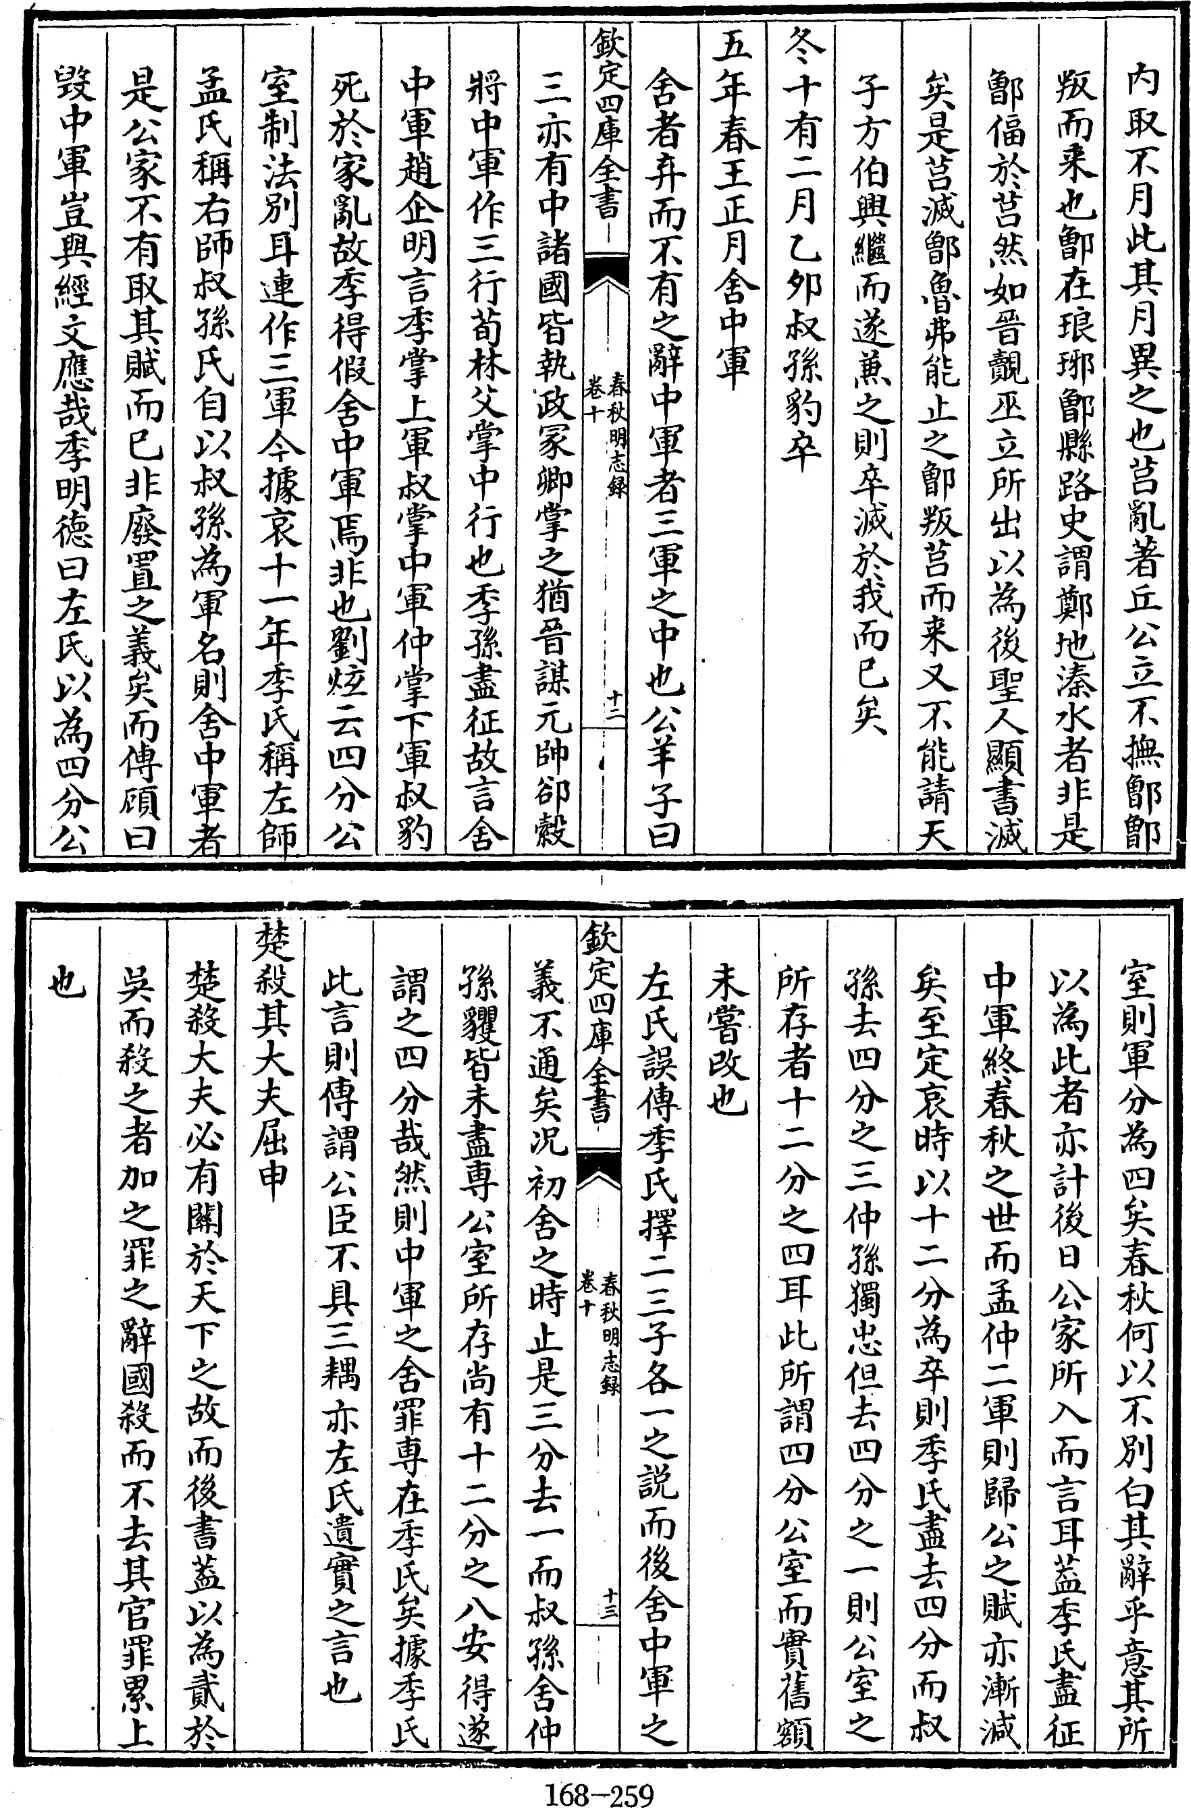 内取不月此其月異之也莒亂著丘公立不撫鄫鄫
叛而来也鄫在琅琊鄫縣路史謂鄭地溱水者非是
鄫偪於莒然如晉覿巫立所出以為後聖人顯書滅
矣是莒滅鄫魯弗能止之鄫叛莒而来又不能請天
子方伯興繼而遂兼之則卒滅於我而已矣
冬十有二月乙夘叔孫豹卒
五年春王正月舍中軍
舍者弃而不有之辭中軍者三軍之中也公羊子曰
欽定四庫全書
春秋明志録
卷十
十二
三亦有中諸國皆執政冢卿掌之猶晉謀元帥郤縠
將中軍作三行荀林父掌中行也季孫盡征故言舍
中軍趙企明言季掌上軍叔掌中軍仲掌下軍叔豹
死於家亂故季得假舍中軍焉非也劉炫云四分公
室制法別耳連作三軍今據哀十一年季氏稱左師
孟氏稱右師叔孫氏自以叔孫為軍名則舍中軍者
是公家不有取其賦而已非廢置之義矣而傳顧曰
毀中軍豈與經文應哉季明徳曰左氏以為四分公
室則軍分為四矣春秋何以不別白其辭乎意其所
以為此者亦計後日公家所入而言耳葢季氏盡征
中軍終春秋之世而孟仲二軍則歸公之賦亦漸減
矣至定哀時以十二分為卒則季氏盡去四分而叔
孫去四分之三仲孫獨忠但去四分之一則公室之
所存者十二分之四耳此所謂四分公室而實舊額
未嘗改也
左氏誤傳季氏擇二三子各一之説而後舍中軍之
欽定四庫全書
春秋明志録
卷十
十三
義不通矣况初舍之時止是三分去一而叔孫舍仲
孫貜皆未盡専公室所存尚有十二分之八安得遂
謂之四分哉然則中軍之舍罪専在季氏矣據季氏
此言則傳謂公臣不具三耦亦左氏遺實之言也
楚殺其大夫屈申
楚殺大夫必有闗於天下之故而後書葢以為貳於
吳而殺之者加之罪之辭國殺而不去其官罪累上
也
168-259